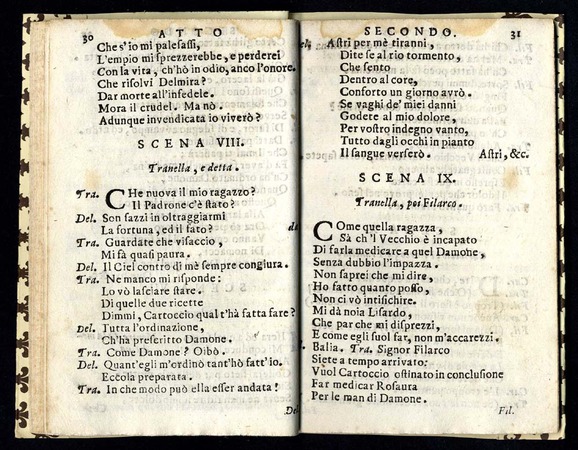 30 ATTO
Che s'io mi palesassi,
L'empio mi sprezzerebbe, e perderei
Con la vita, ch'hò in odio, anco l'onore.
Che risolvi Delmira?
Dar morte all'infedele.
Mora il crudel. Ma nò.
Adunque invendicata io viverò?
SCENA VIII.
Tranella, e detta.
Tra. CHe nuova il mio ragazzo?
Il Padrone c'è stato?
Del. Son sazzi in oltraggiarmi
La fortuna, ed il fato?
Tra. Guardate che visaccio,
Mi fà quasi paura.
Del. Il Ciel contro di mè sempre congiura.
Tra. Ne manco mi risponde:
Lo vò lasciare stare.
Di quelle due ricette
Dimmi, Cartoccio qual t'hà fatta fare?
Del. Tutta l'ordinazione,
Ch'hà prescritto Damone.
Tra. Come Damone? Oibò.
Del. Quant'egli m'ordinò tant'hò fatt'io.
Eccola preparata.
Tra. In che modo può ella esser andata!
Del
SECONDO. 31
Astri per mè tiranni,
Dite se al rio tormento,
Che sento
Dentro al core,
Conforto un giorno avrò.
Se vaghi de' miei danni
Godete al mio dolore,
Per vostro indegno vanto,
Tutto dagli occhi in pianto
Il sangue verserò. Astri, &c.
SCENA IX.
Tranella, poi Filarco.
COme quella ragazza,
Sà ch'l Vecchio è incapato
Di farla medicare a quel Damone,
Senza dubbio l'impazza.
Non saprei che mi dire,
Ho fatto quanto posso,
Non ci vò intisichire.
Mi dà noia Lisardo,
Che par che mi disprezzi,
E come egli suol far, non m'accarezzi.
Balia. Tra. Signor Filarco
Siete a tempo arrivato:
Vuol Cartoccio ostinato in conclusione
Far medicar Rosaura
Per le man di Damone.
Fil.